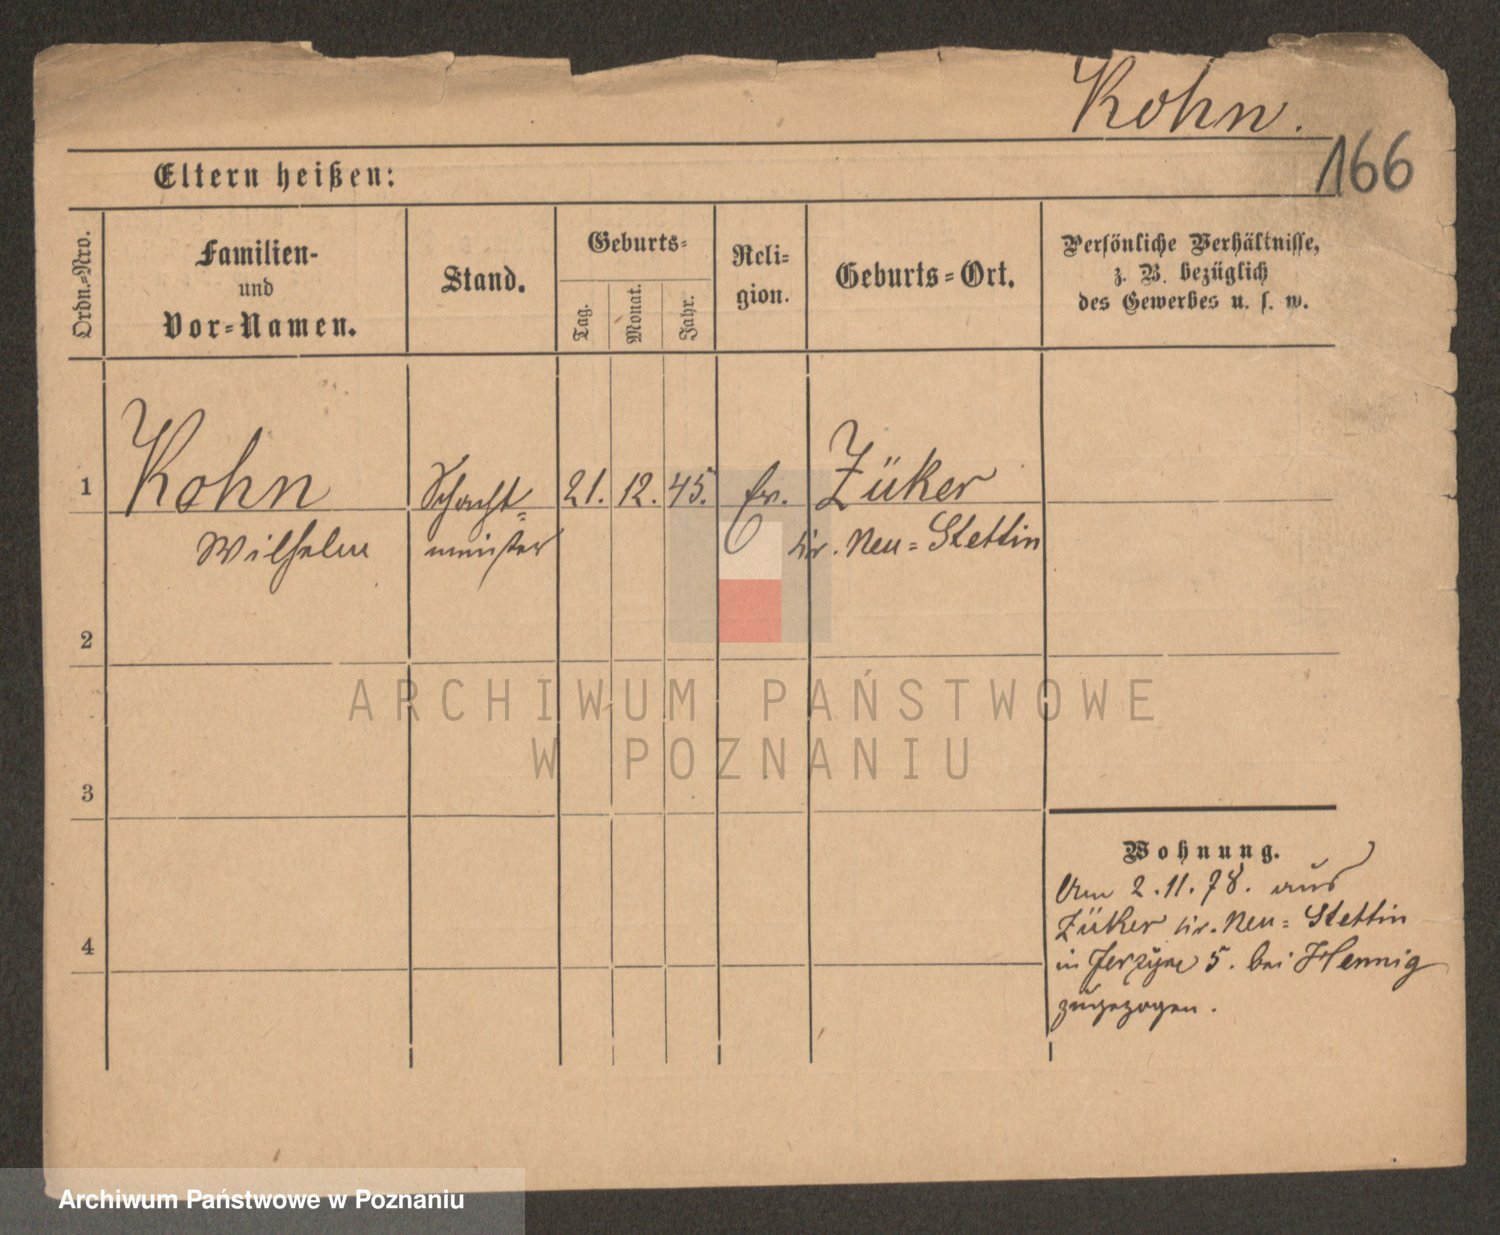 Kohn.
166
Eltern heißen:
Ordn.-Nro.
Familien-
und
Vor-Namen.
Stand.
Geburts-
Tag.
Monat.
Jahr.
Reli-
gion.
Geburts-Ort.
Persönliche Verhältnisse,
z. B. bezüglich
des Gewerbes u. s. w.
1
Kohn
Schacht-
21. 12. 45.
ev.
Züker
Wilhelm
meister
Kr. Neu-Stettin
2
ARCHIWUM PAŃSTWOWE
W POZNANIU
3
Wohnung.
Am 2.11.78. aus
Züker Kr. Neu-Stettin
4
in Jerzyce 5. bei Hennig
zugezogen.
Archiwum Państwowe w Poznaniu